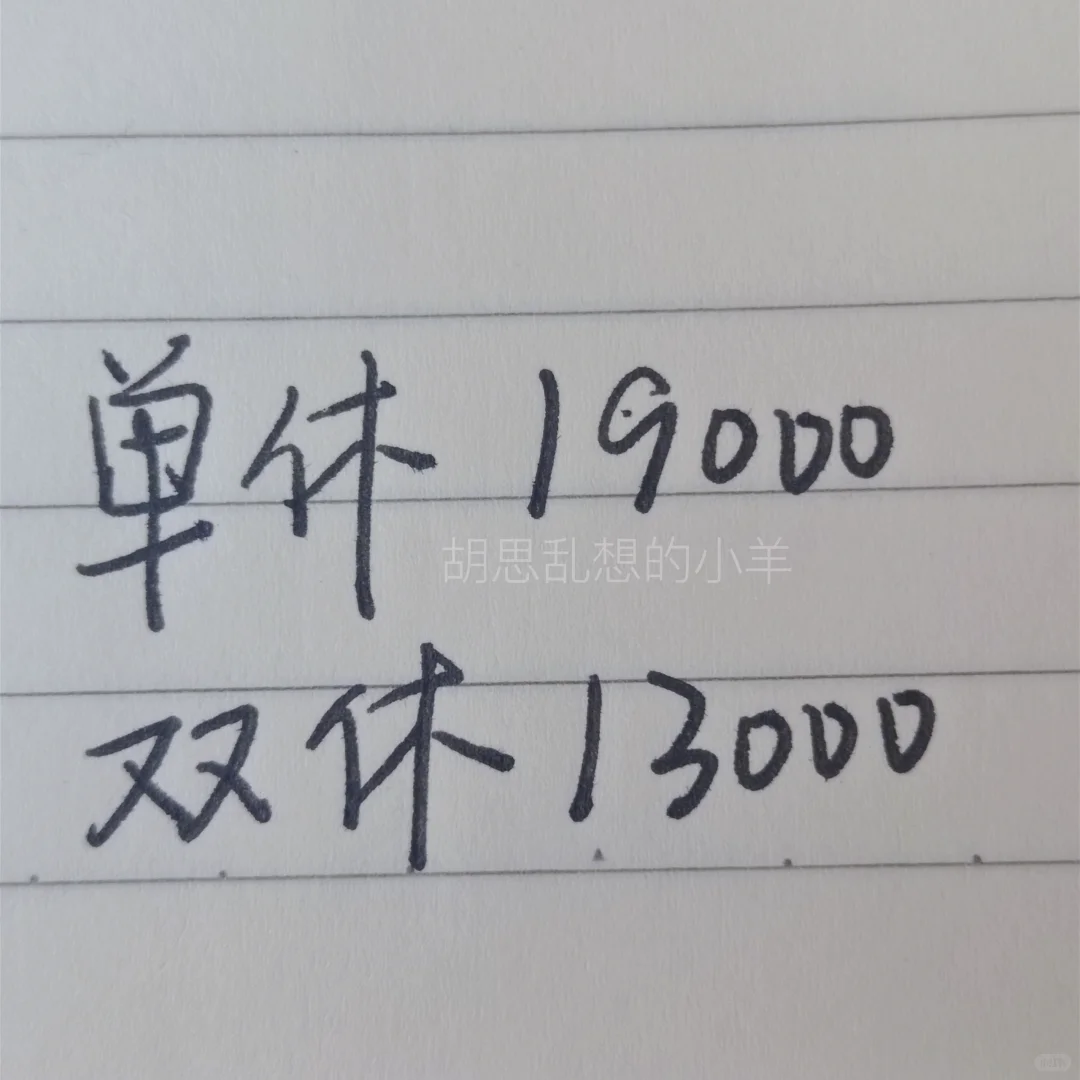 单休 19000
胡思乱想的小羊
双休 13000